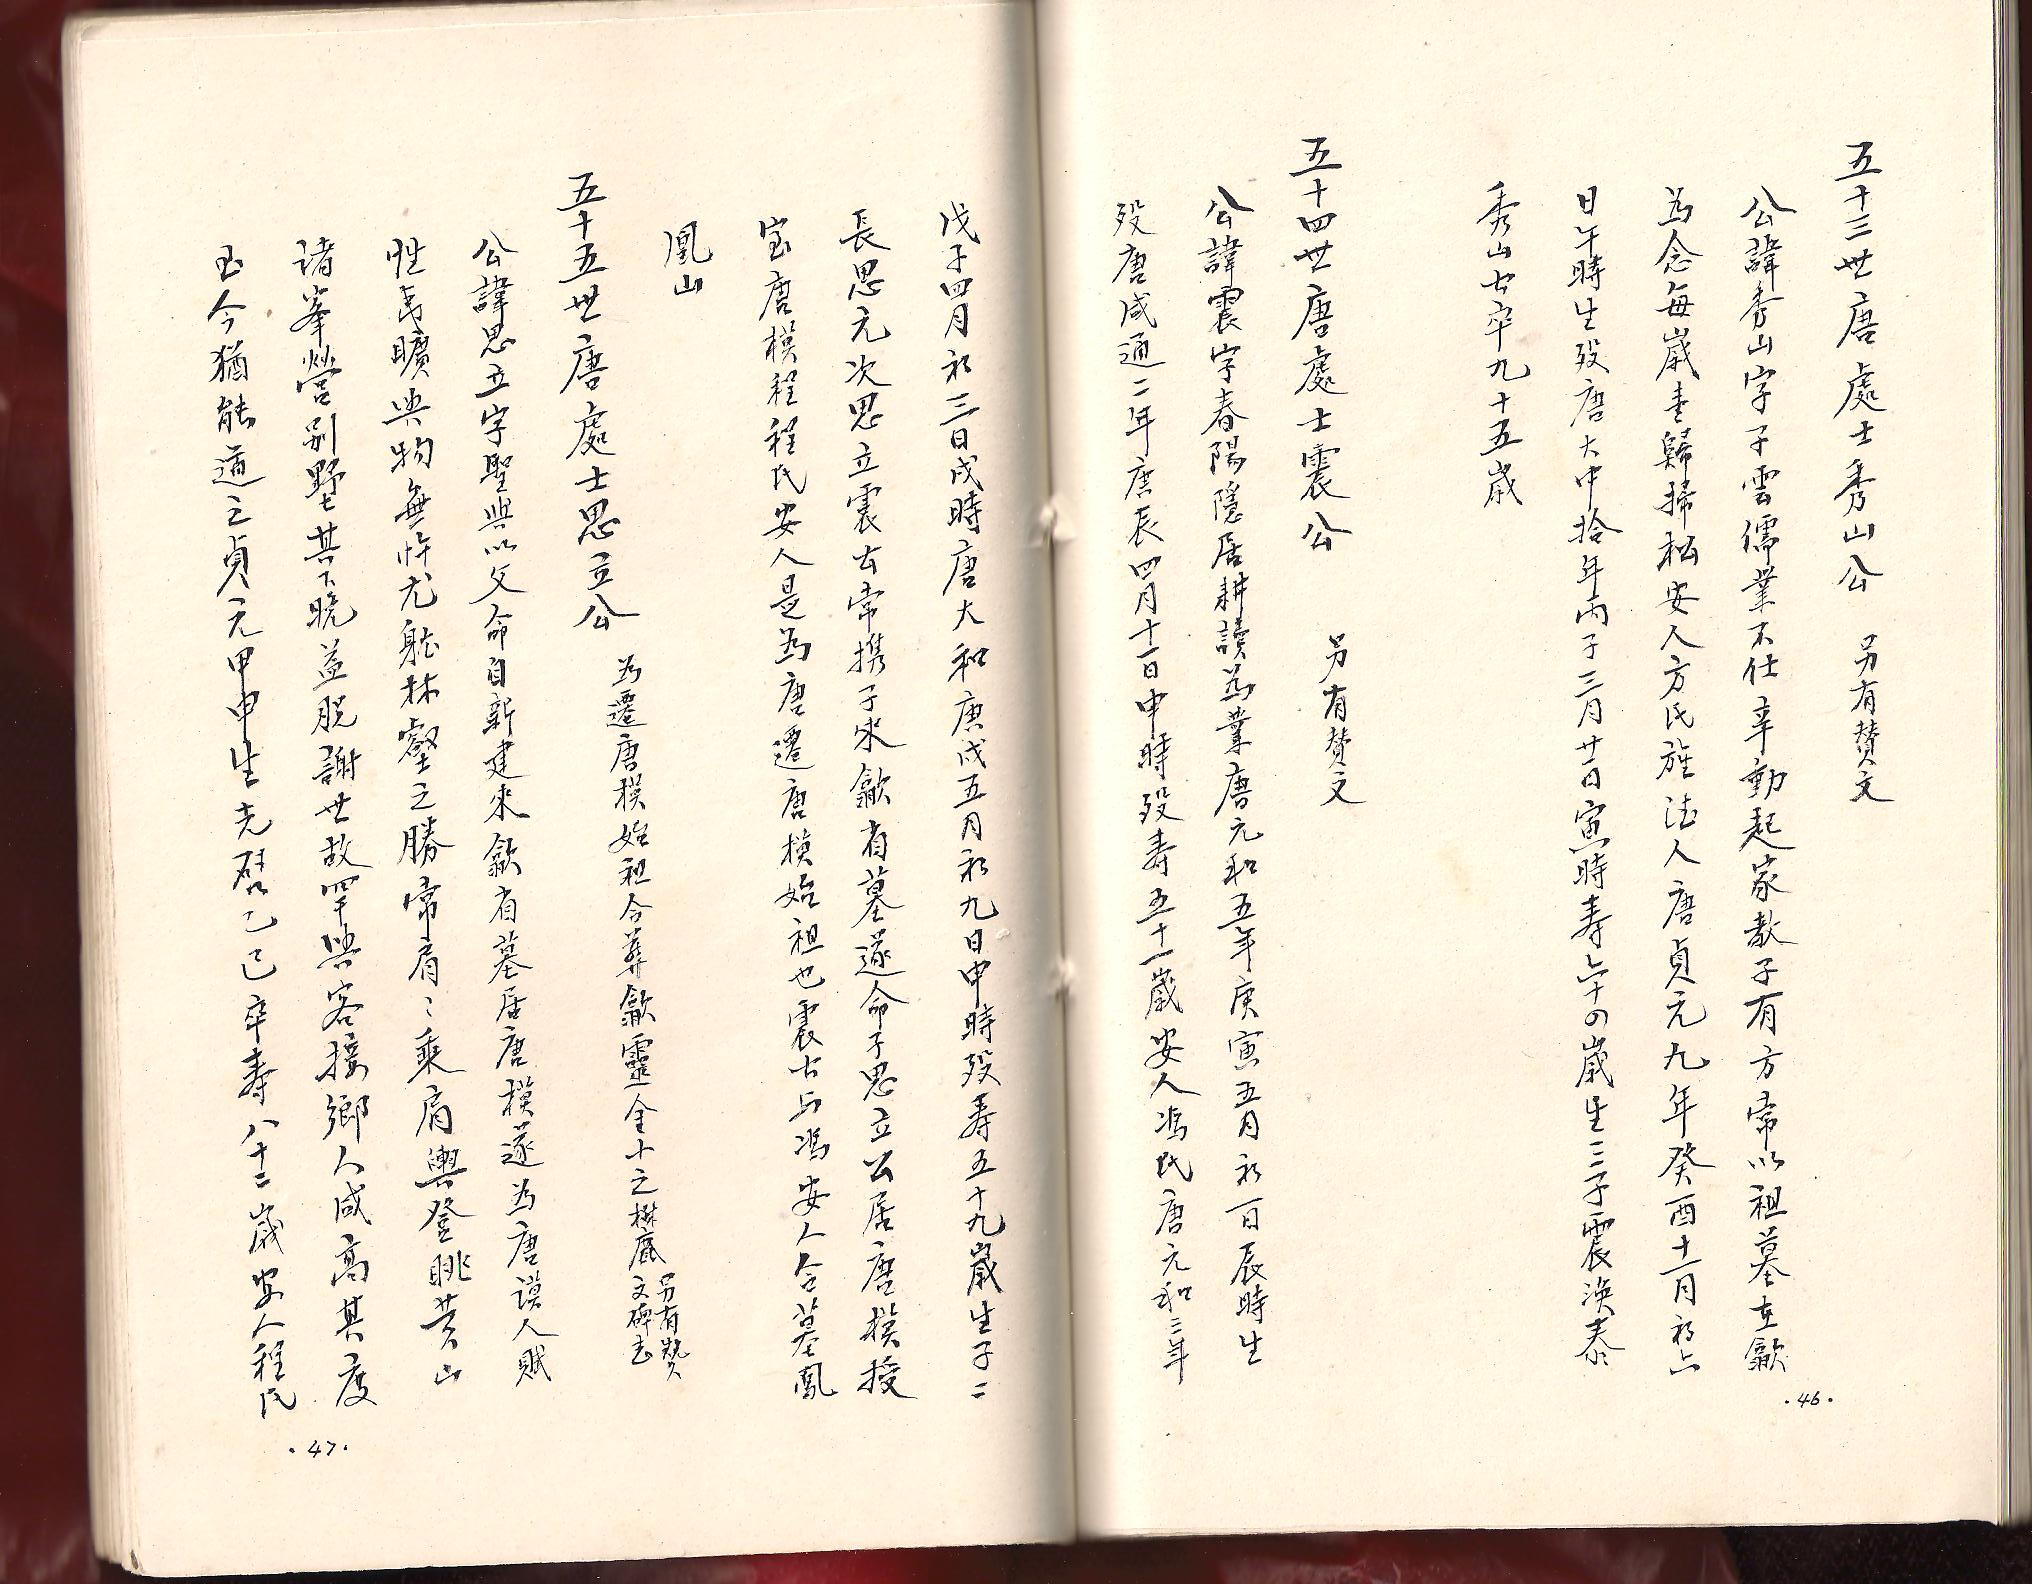 五十三世唐處士秀山公 另有贊文
公諱秀山字子雲儒業不仕辛勤起家教子有方常以祖墓在歙
為念每歲書歸掃松安人方氏旌德人唐貞元九年癸酉十一月初六
日午時生歿唐大中拾年丙子三月廿日寅時壽六十四歲生三子震渙泰
秀山公卒九十五歲
五十四世唐處士震公 另有贊文
公諱震字春陽隱居耕讀為業唐元和五年庚寅五月初一日辰時生
歿唐咸通二年庚辰四月十一日申時歿壽五十一歲安人馮氏唐元和三年
戊子四月初三日戌時唐大和庚戌五月初九日申時歿壽五十九歲生子二
長思元次思立震公常攜子來歙省墓遂命子思立公居唐模授
室唐模程程氏安人是為唐遷唐模始祖也震公與馮安人合墓鳳
凰山
五十五世唐處士思立公 為遷唐模始祖合葬歙靈金十之樹底 另有贊文碑志
公諱思立字聖與以父命自新建來歙省墓居唐模遂為唐謨人賦
性夷曠與物無忤尤躭林壑之勝常肩〻乘肩輿登眺黃山
諸峯營別野七其下晚益脫謝世故罕與客接鄉人咸高其度
玉今猶能道之貞元甲申生光啟乙巳卒壽八十二歲安人程氏
·46·
·47·